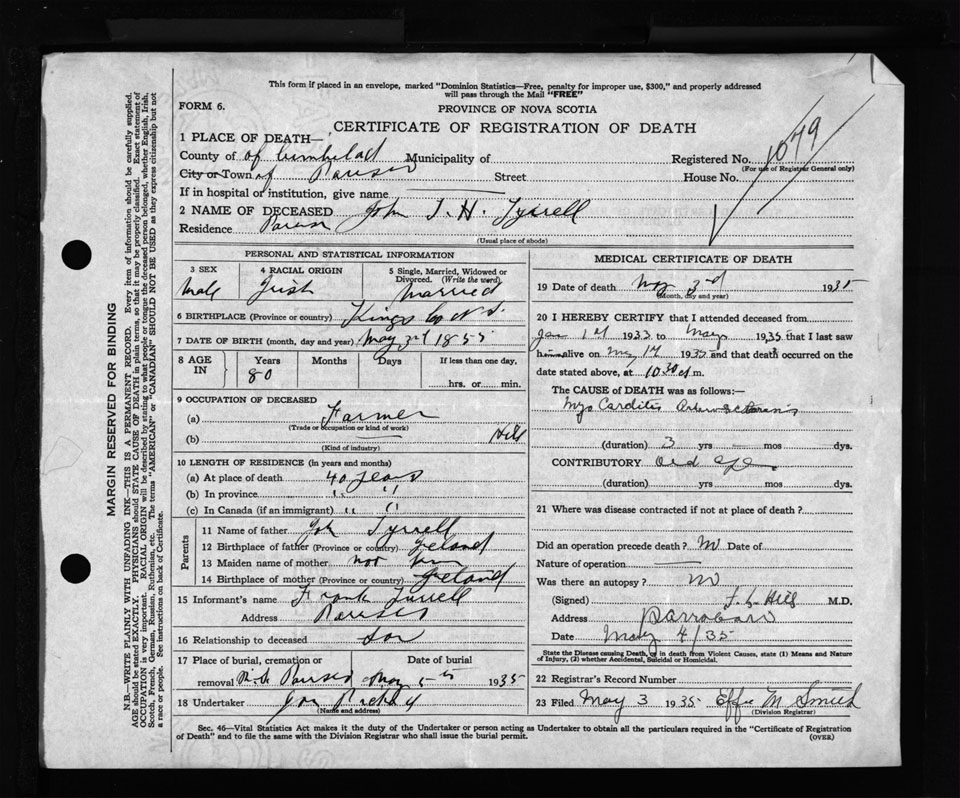 This form if placed in an envelope, marked "Dominion Statistics—Free, penalty for improper use, $300," and properly addressed
will pass through the Mail "FREE"
FORM 6.
PROVINCE OF NOVA SCOTIA
CERTIFICATE OF REGISTRATION OF DEATH
1 PLACE OF DEATH—
County of of Cumberland Municipality of Registered No. 1079
(For use of Registrar General only)
City or Town of Street House No.
If in hospital or institution, give name
2 NAME OF DECEASED John T. H. Tyrrell
Residence
(Usual place of abode)
PERSONAL AND STATISTICAL INFORMATION
3 SEX
Male
4 RACIAL ORIGIN
Irish
5 Single, Married, Widowed or
Divorced. (Write the word)
Married
6 BIRTHPLACE (Province or country) Kings Co N S.
7 DATE OF BIRTH (month, day and year) May 3rd 1855
8 AGE
IN
Years
80
Months
Days
If less than one day,
hrs. or min.
9 OCCUPATION OF DECEASED
(a) Farmer
(Trade or occupation or kind of work)
(b) Hill
(Kind of industry)
10 LENGTH OF RESIDENCE (in years and months)
(a) At place of death 40 years
(b) In province " "
(c) In Canada (if an immigrant) " "
Parents
11 Name of father Tyrrell
12 Birthplace of father (Province or country) Ireland
13 Maiden name of mother not
14 Birthplace of mother (Province or country) Ireland
15 Informant's name Frank Tyrrell
Address
16 Relationship to deceased Son
17 Place of burial, cremation or
removal
Date of burial
May 5 1935
18 Undertaker
(Name and address)
MEDICAL CERTIFICATE OF DEATH
19 Date of death May 3rd 1935
(Month, day and year)
20 I HEREBY CERTIFY that I attended deceased from
Jan 1st 1933 to May 1935 that I last saw
him alive on May 1935 and that death occurred on the
date stated above, at 10.30 m.
The CAUSE OF DEATH was as follows:—
Myo Carditis
(duration) 3 yrs mos dys.
CONTRIBUTORY Old age
(duration) yrs mos dys.
21 Where was disease contracted if not at place of death?
Did an operation precede death? No Date of
Nature of operation
Was there an autopsy? no
(Signed) Hill M.D.
Address Parrsboro
Date May 4/35
State the Disease causing Death, or in death from Violent Causes, state (1) Means and
Nature of Injury, (2) whether Accidental, Suicidal or Homicidal.
22 Registrar's Record Number
23 Filed May 3 1935 Effie M Smith
(Division Registrar)
Sec. 46—Vital Statistics Act makes it the duty of the Undertaker or person acting as Undertaker to obtain all the particulars required in the "Certificate of Registration
of Death" and to file the same with the Division Registrar who shall issue the burial permit.
(OVER)
MARGIN RESERVED FOR BINDING
N.B.—WRITE PLAINLY WITH UNFADING INK—THIS IS A PERMANENT RECORD. Every item of information should be carefully supplied.
AGE should be stated EXACTLY. PHYSICIANS should STATE CAUSE OF DEATH in plain terms, so that it may be properly classified. Exact statement of
OCCUPATION is very important. RACIAL ORIGIN will be described by stating to what people or tongue the deceased person belonged, whether English, Irish,
Scotch, French, German, Russian, Ruthenian, etc. The terms "AMERICAN" or "CANADIAN" SHOULD NOT BE USED as they express citizenship but not
a race or people. See instructions on back of Certificate.